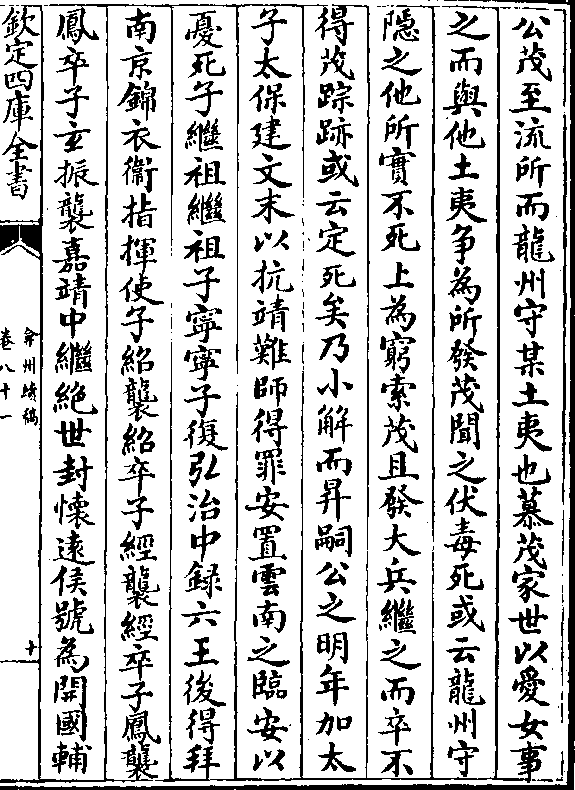 公茂至流所而龍州守某土夷也慕茂家世以愛女事
之而與他土夷争為所發茂聞之伏毒死或云龍州守
隠之他所實不死上為窮索茂且發大兵繼之而卒不
得茂踪跡或云定死矣乃小解而昇嗣公之明年加太
子太保建文末以抗靖難師得罪安置雲南之臨安以
憂死子繼祖繼祖子寧寧子復弘治中録六王後得拜
南京錦衣衞指揮使子紹襲紹卒子經襲經卒子鳳襲
鳳卒子玄振襲嘉靖中繼絶世封懐逺侯號為開國輔
欽定四庫全書
弇州續稿
卷八十一
十